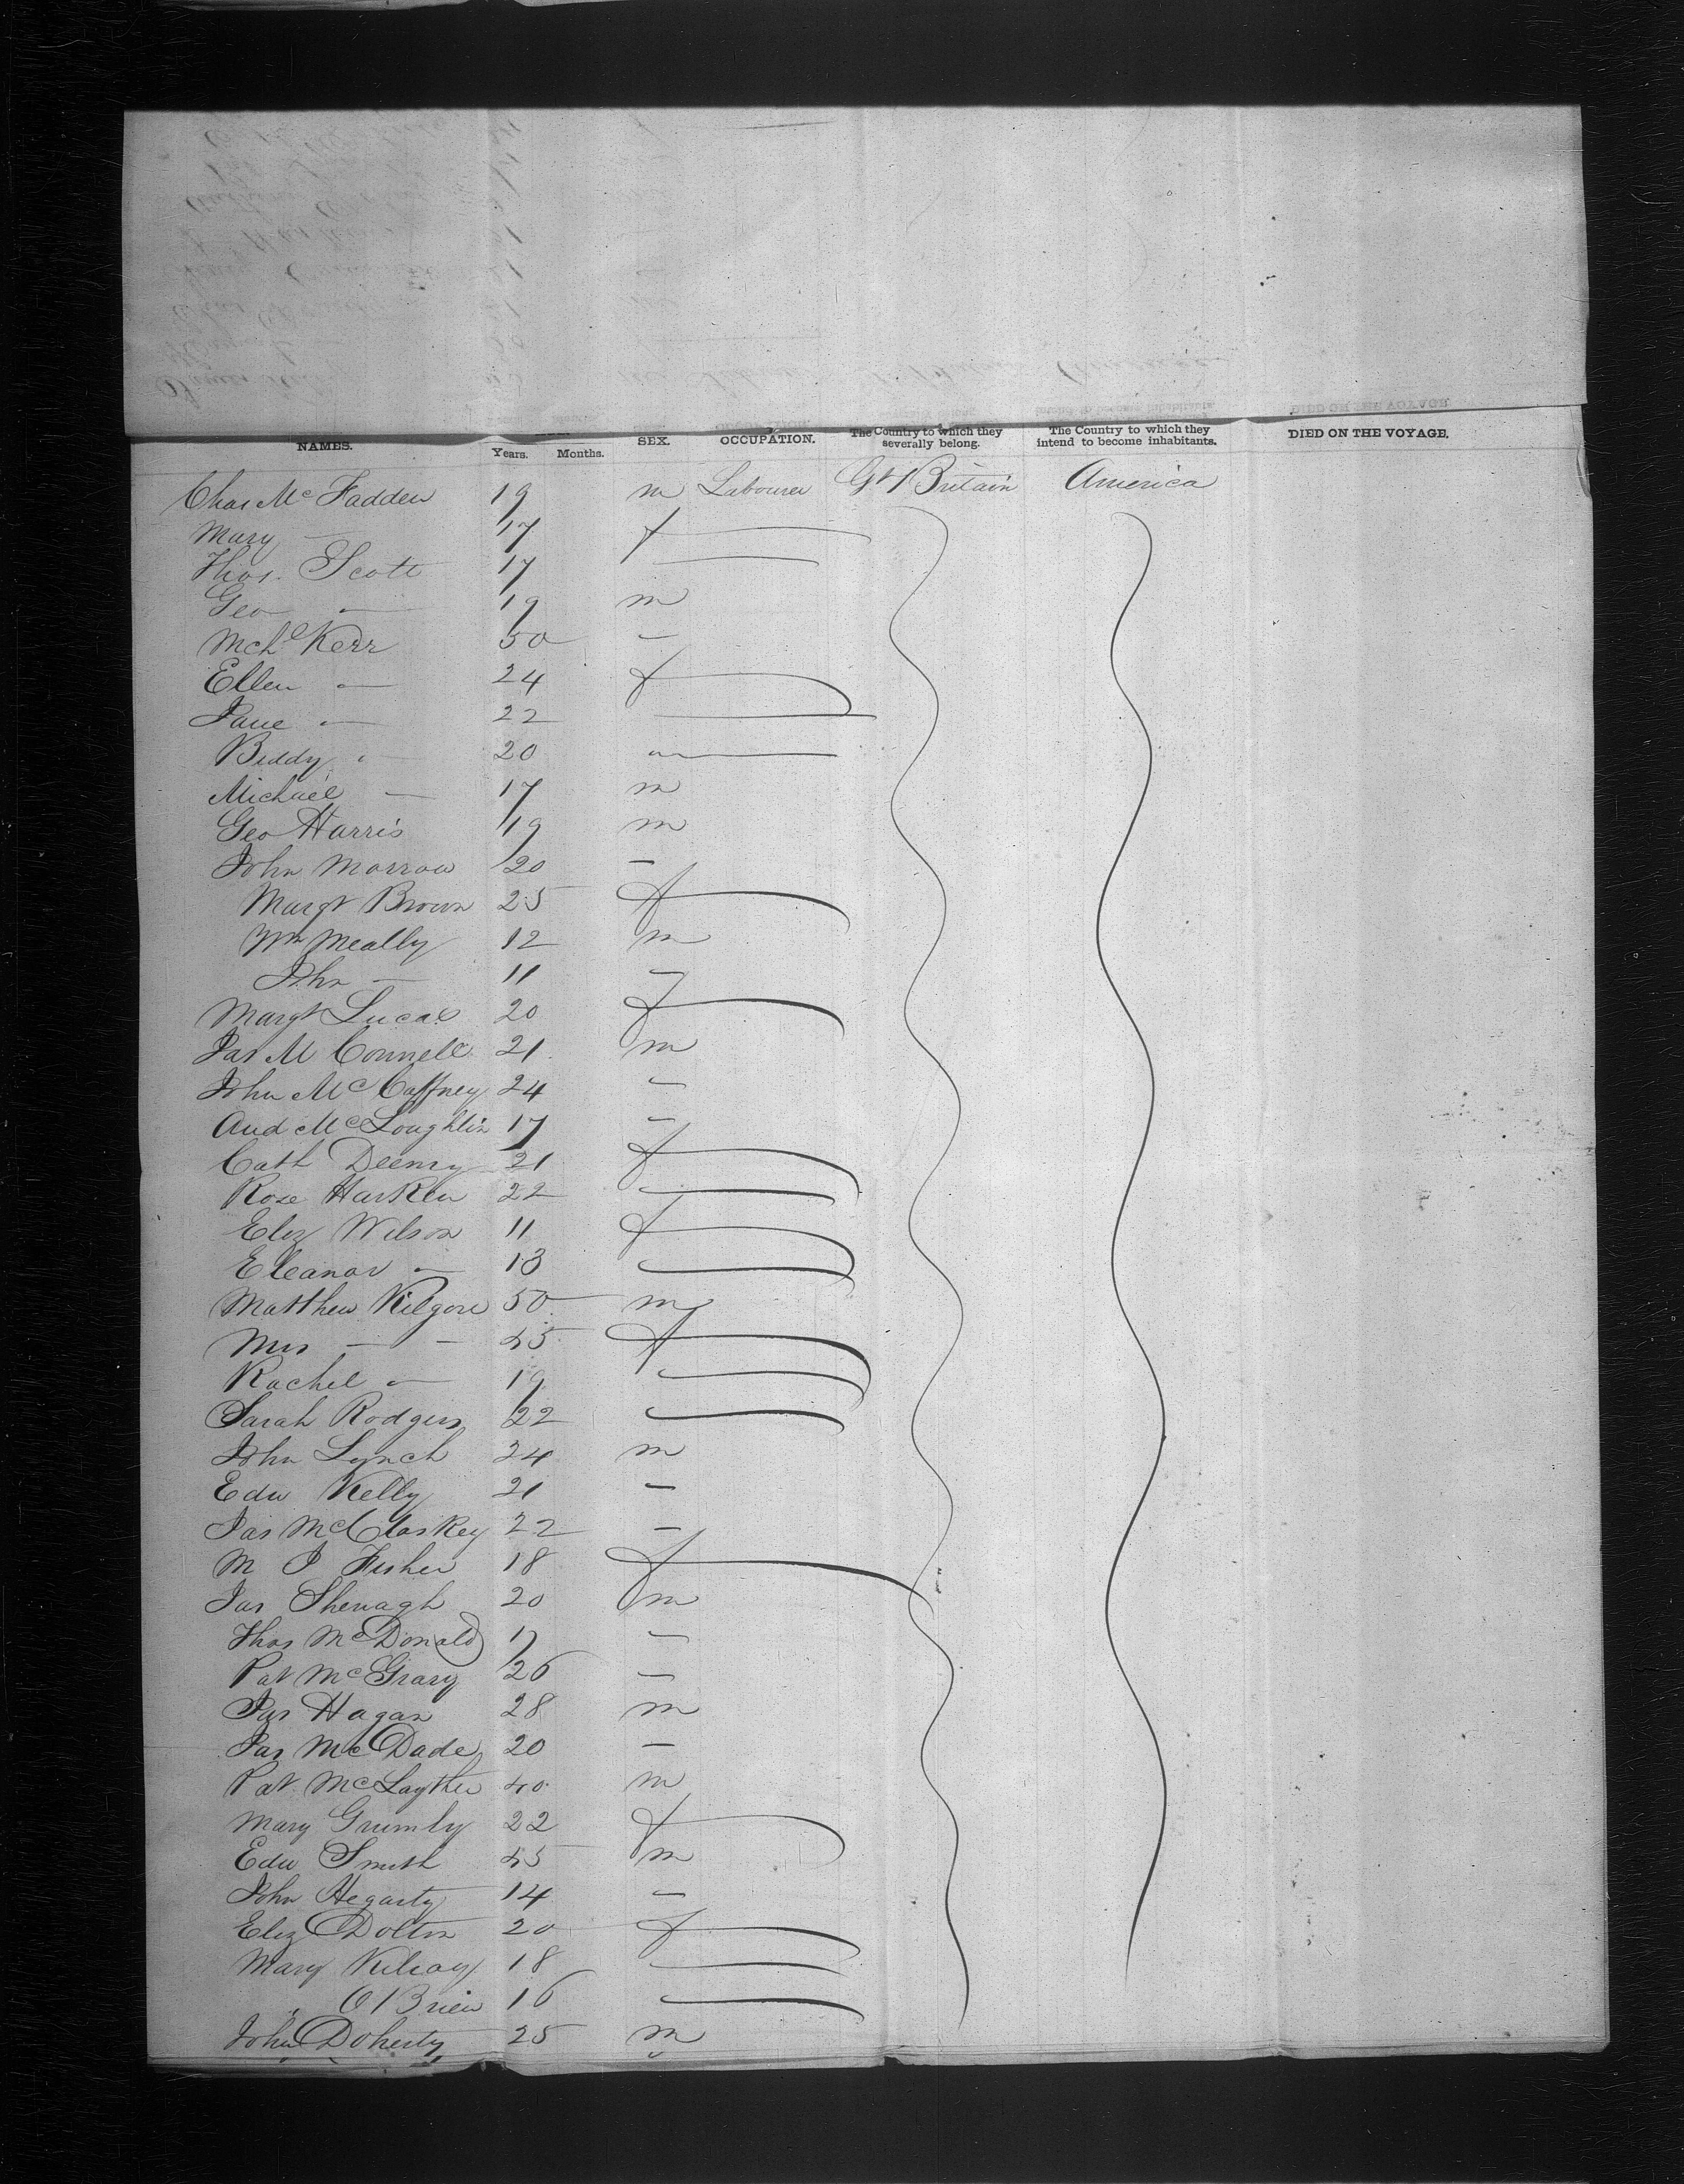 NAMES. Years. Months. SEX. OCCUPATION. The Country to which they severally belong. The Country to which they intend to become inhabitants. DIED ON THE VOYAGE.
Chas Mc Fadden 19 m Labourer Gt Britain America
Mary — 17 f —
Thos. Scott 17 —
Geo — 19 m
Mchl Kerr 50 —
Ellen — 24 f
Jane — 22 —
Biddy — 20 —
Michael — 17 m
Geo Harris 19 m
John Morrow 20 —
Margt Brown 25 f
Wm Meally 12 m
John — 11 —
Margt Lucas 20 f
Jas M Connell 21 m
John Mc Caffney 24 —
And McLoughlin 17 —
Cath Deeny 21 f
Rose Harkin 22 —
Eliz Wilson 11 f
Eleanor — 13 —
Matthew Kilgore 50 m
Mrs — — 45 f
Rachel — 19 —
Sarah Rodgers 22 —
John Lynch 24 m
Edw Kelly 21 —
Jas McCloskey 22 —
M J Fisher 18 f
Jas Shenagh 20 m
Thos McDonald 17 —
Pat McGrary 26 —
Jas Hagan 28 m
Jas McDade 20 —
Pat McLayther 40 m
Mary Grumly 22 f
Edw Smith 45 m
John Hegarty 14 —
Eliz Dolton 20 f
Mary Kilroy 18 —
O'Brien 16 —
John Doherty 25 m